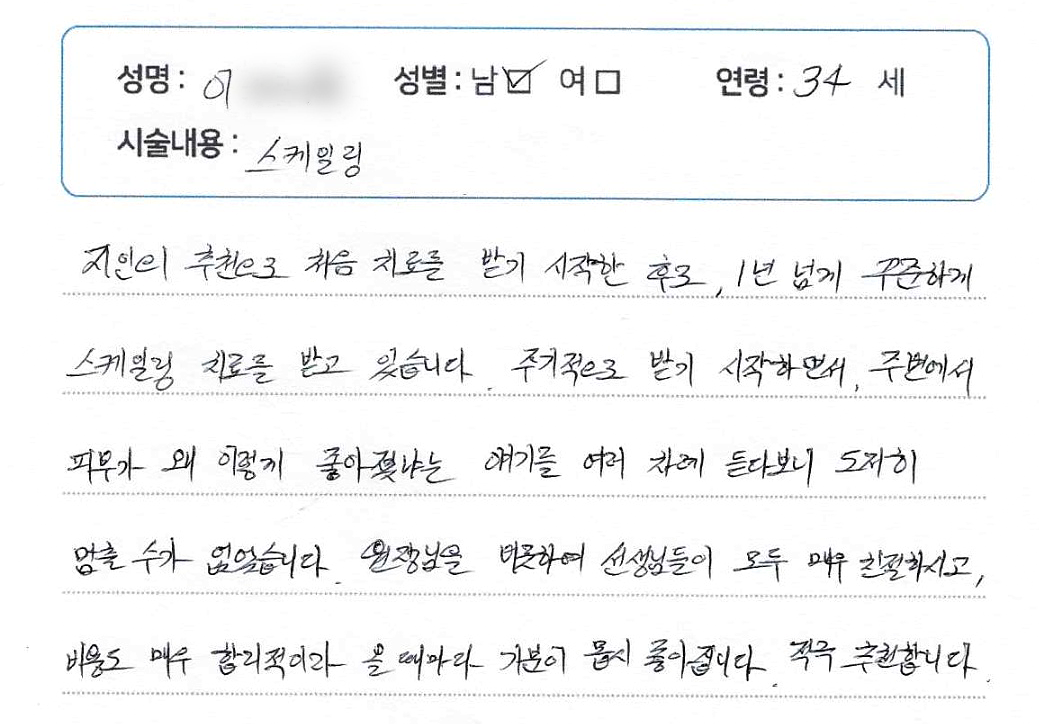 성명 : 이 성별 : 남☑ 여□ 연령 : 34 세
시술내용 : 스케일링
지인의 추천으로 처음 치료를 받기 시작한 후로, 1년 넘게 꾸준하게
스케일링 치료를 받고 있습니다. 주기적으로 받기 시작하면서, 주변에서
피부가 왜 이렇게 좋아졌냐는 얘기를 여러 차례 듣다보니 도저히
멈출 수가 없었습니다. 원장님을 비롯하여 선생님들이 모두 매우 친절하시고,
비용도 매우 합리적이라 올 때마다 기분이 몹시 좋아집니다. 적극 추천합니다.